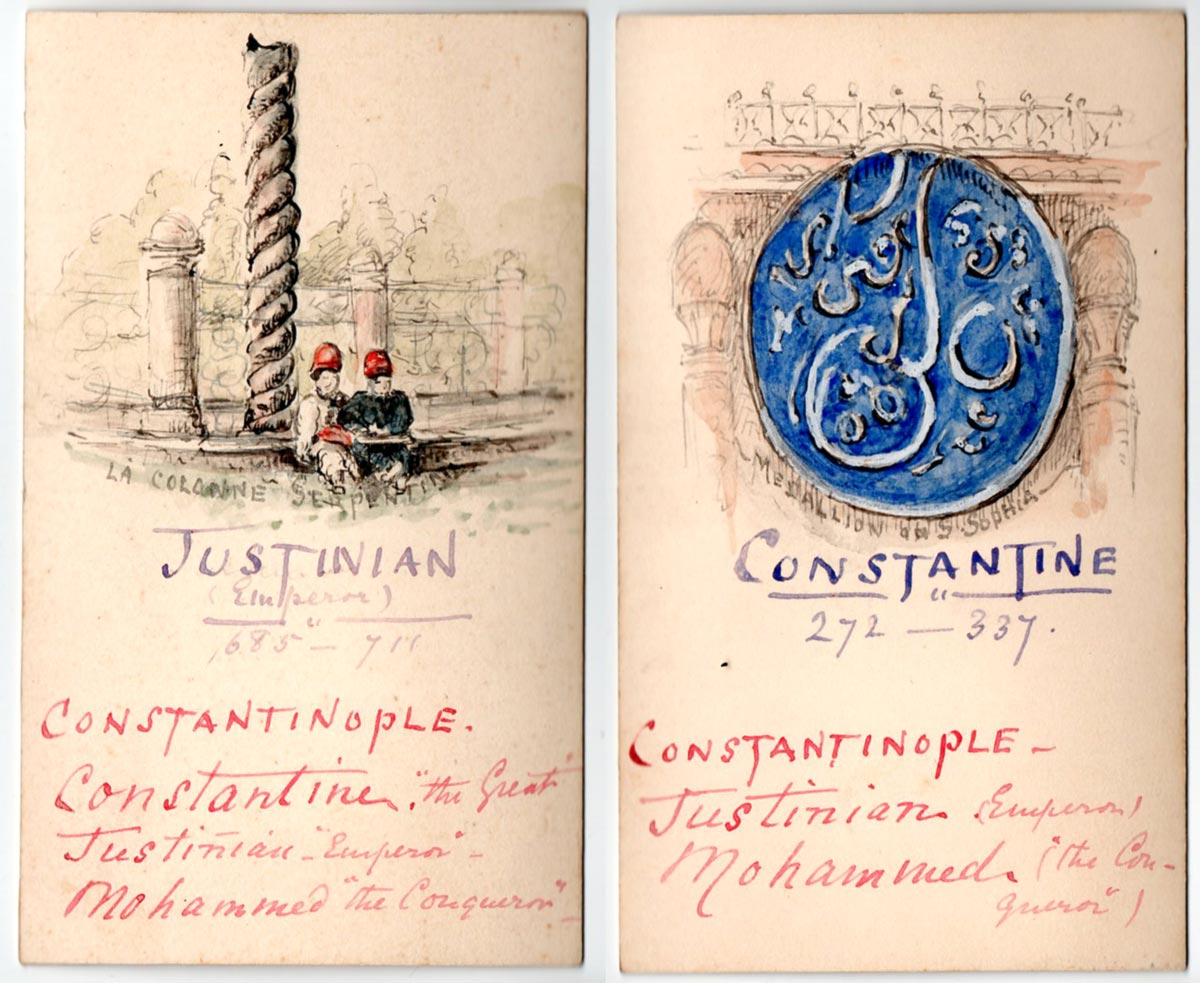 LA COLONNE SERPENTINE
JUSTINIAN
(Emperor)
"
685 – 711
CONSTANTINOPLE.
Constantine. "the Great"
Justinian – "Emperor" –
Mohammed "the Conqueror" –
MEDALLION S. SOPHIA
CONSTANTINE
"
272 — 337.
CONSTANTINOPLE –
Justinian. (Emperor)
Mohammed. ("the Con-
queror")